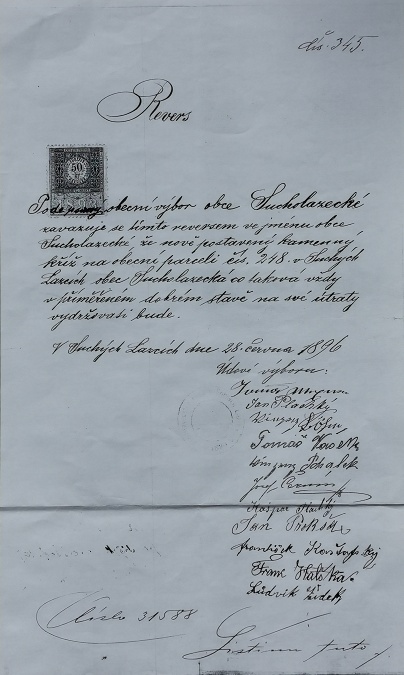 čís. 345.
Revers
50
Podepsaný obecní výbor obce Sucholazecké
zavazuje se tímto reversem ve jménu obce
Sucholazecké, že nově postavený kamenný
kříž na obecní parceli čís. 248. v Suchých
Lazcích obec Sucholazecká co taková vždy
v přiměřeném dobrém stavě na své útraty
vydržovati bude.
V Suchých Lazcích dne 28. června 1896
Údové výboru:
Jan
Tomáš
Josef
Kašpar
Jan
František
Franc Halška
Ludvik Židek
Číslo 31588
Listinu tuto